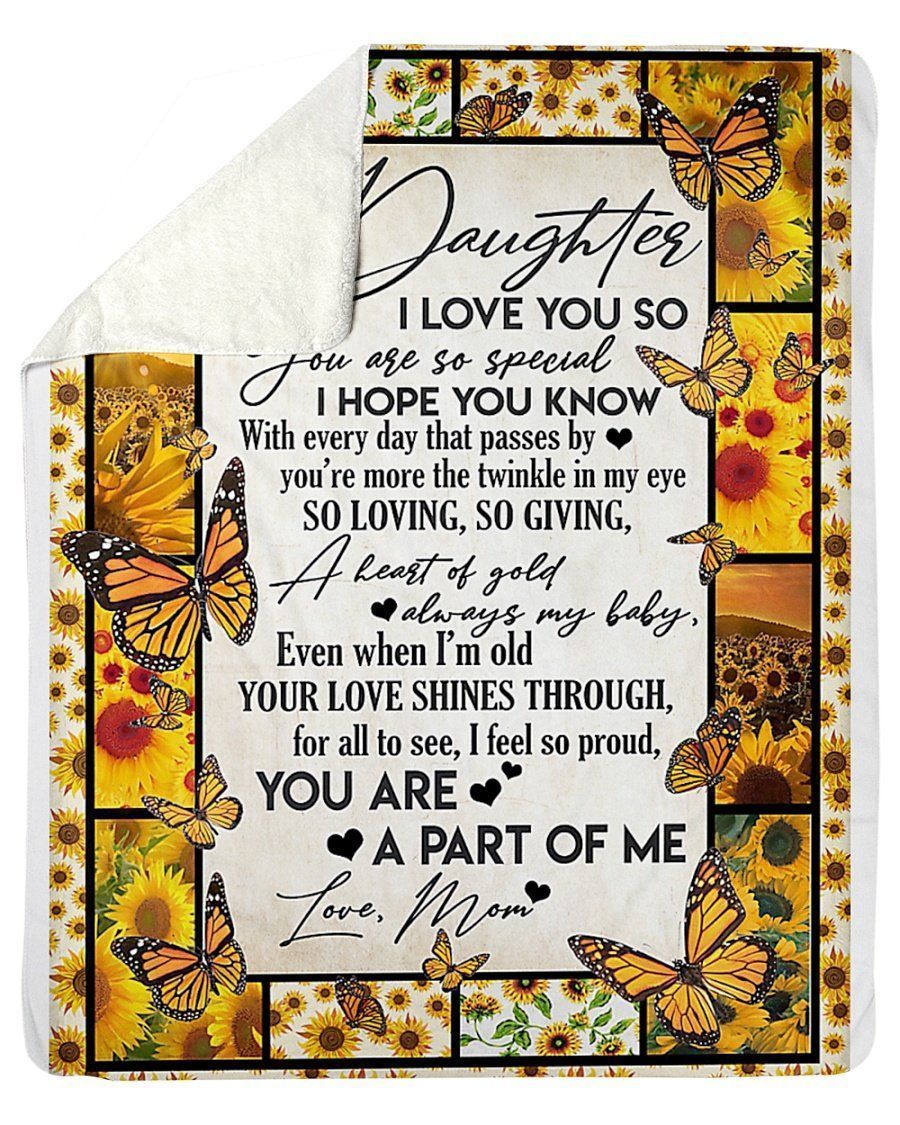 Daughter
I LOVE YOU SO
You are so special
I HOPE YOU KNOW
With every day that passes by
you're more the twinkle in my eye
SO LOVING, SO GIVING,
A heart of gold
always my baby,
Even when I'm old
YOUR LOVE SHINES THROUGH,
for all to see, I feel so proud,
YOU ARE
A PART OF ME
Love, Mom